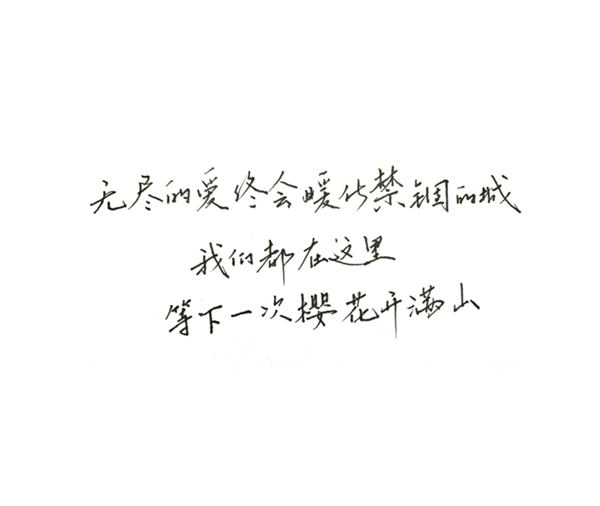 无尽的爱终会暖化禁锢的城
我们都在这里
等下一次樱花开满山